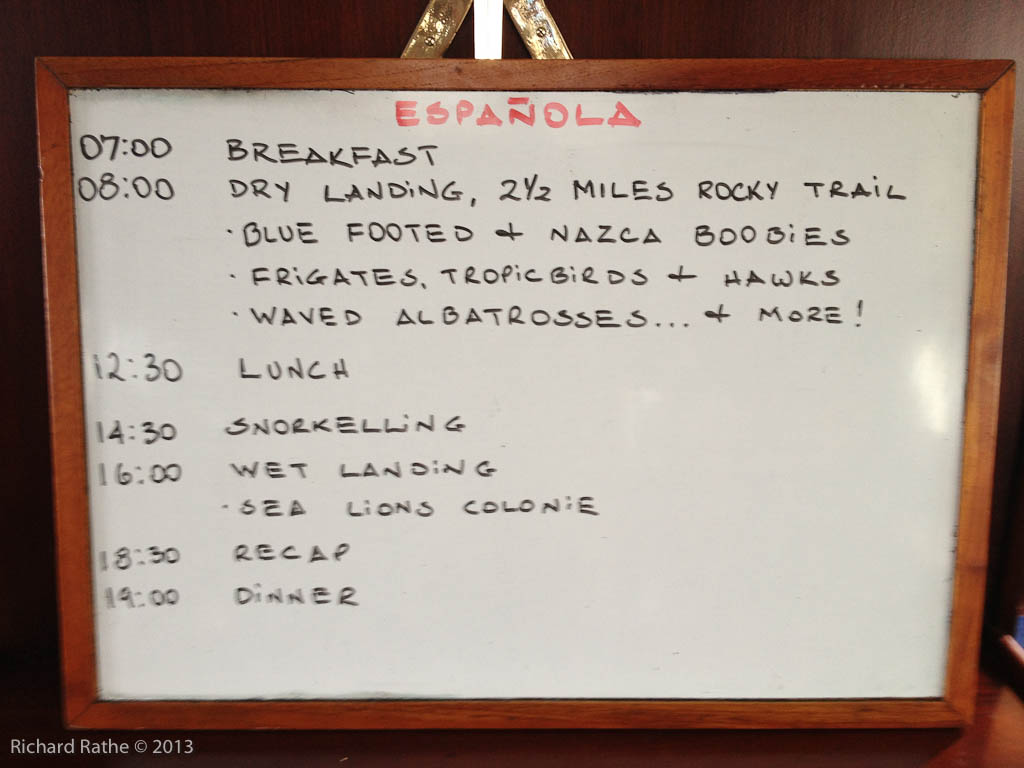 ESPAÑOLA
07:00 BREAKFAST
08:00 DRY LANDiNG, 2 1/2 MiLES ROCKY TRAiL
· BLUE FOOTED & NAZCA BOOBiES
· FRiGATES, TROPiCBiRDS & HAWKS
· WAVED ALBATROSSES... & MORE!
12:30 LUNCH
14:30 SNORKELLiNG
16:00 WET LANDiNG
· SEA LiONS COLONiE
18:30 RECAP
19:00 DiNNER
Richard Rathe © 2013